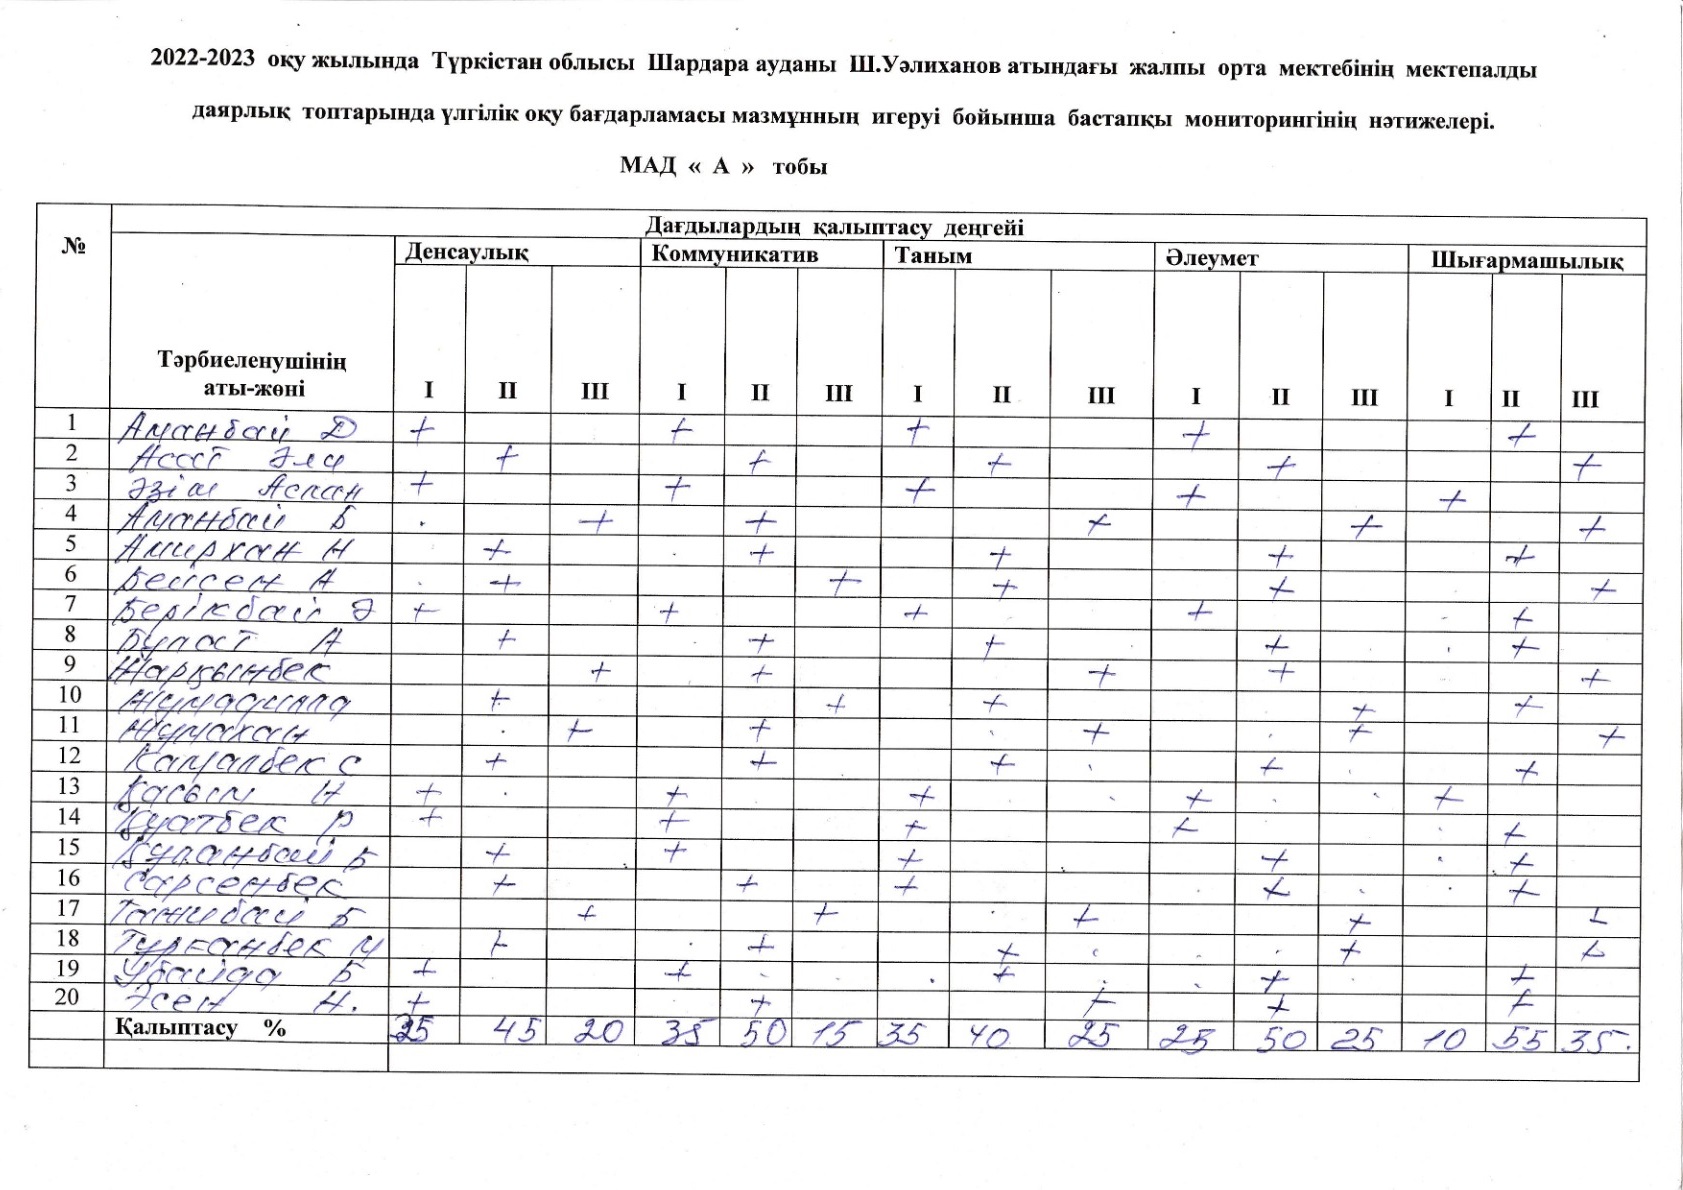 2022-2023 оқу жылында Түркістан облысы Шардара ауданы Ш.Уәлиханов атындағы жалпы орта мектебінің мектепалды
даярлық топтарында үлгілік оқу бағдарламасы мазмұнның игеруі бойынша бастапқы мониторингінің нәтижелері.
МАД « А » тобы
Дағдылардың қалыптасу деңгейі
№
Денсаулық Коммуникатив Таным Әлеумет Шығармашылық
Тәрбиеленушінің
аты-жөні I II III I II III I II III I II III I II III
1 Аманбай Д + + + + +
2 Асат Әли + + + + +
3 Әзім Аслан + + + + +
4 Аманбай Б + + + + +
5 Амирхан Н + + + + +
6 Бейсен А + + + + +
7 Берікбай Ә + + + + +
8 Булат А + + + + +
9 Жарқынбек + + + + +
10 Жумадилла + + + + +
11 Жумахан + + + + +
12 Камалбек С + + + + +
13 Қасым Н + + + + +
14 Қуатбек Р + + + + +
15 Құланбай Б + + + + +
16 Сарсенбек + + + + +
17 Тажибай Б + + + + +
18 Турганбек И + + + + +
19 Убайда Б + + + + +
20 Әсен Н. + + + + +
Қалыптасу % 35 45 20 35 50 15 35 40 25 25 50 25 10 55 35.